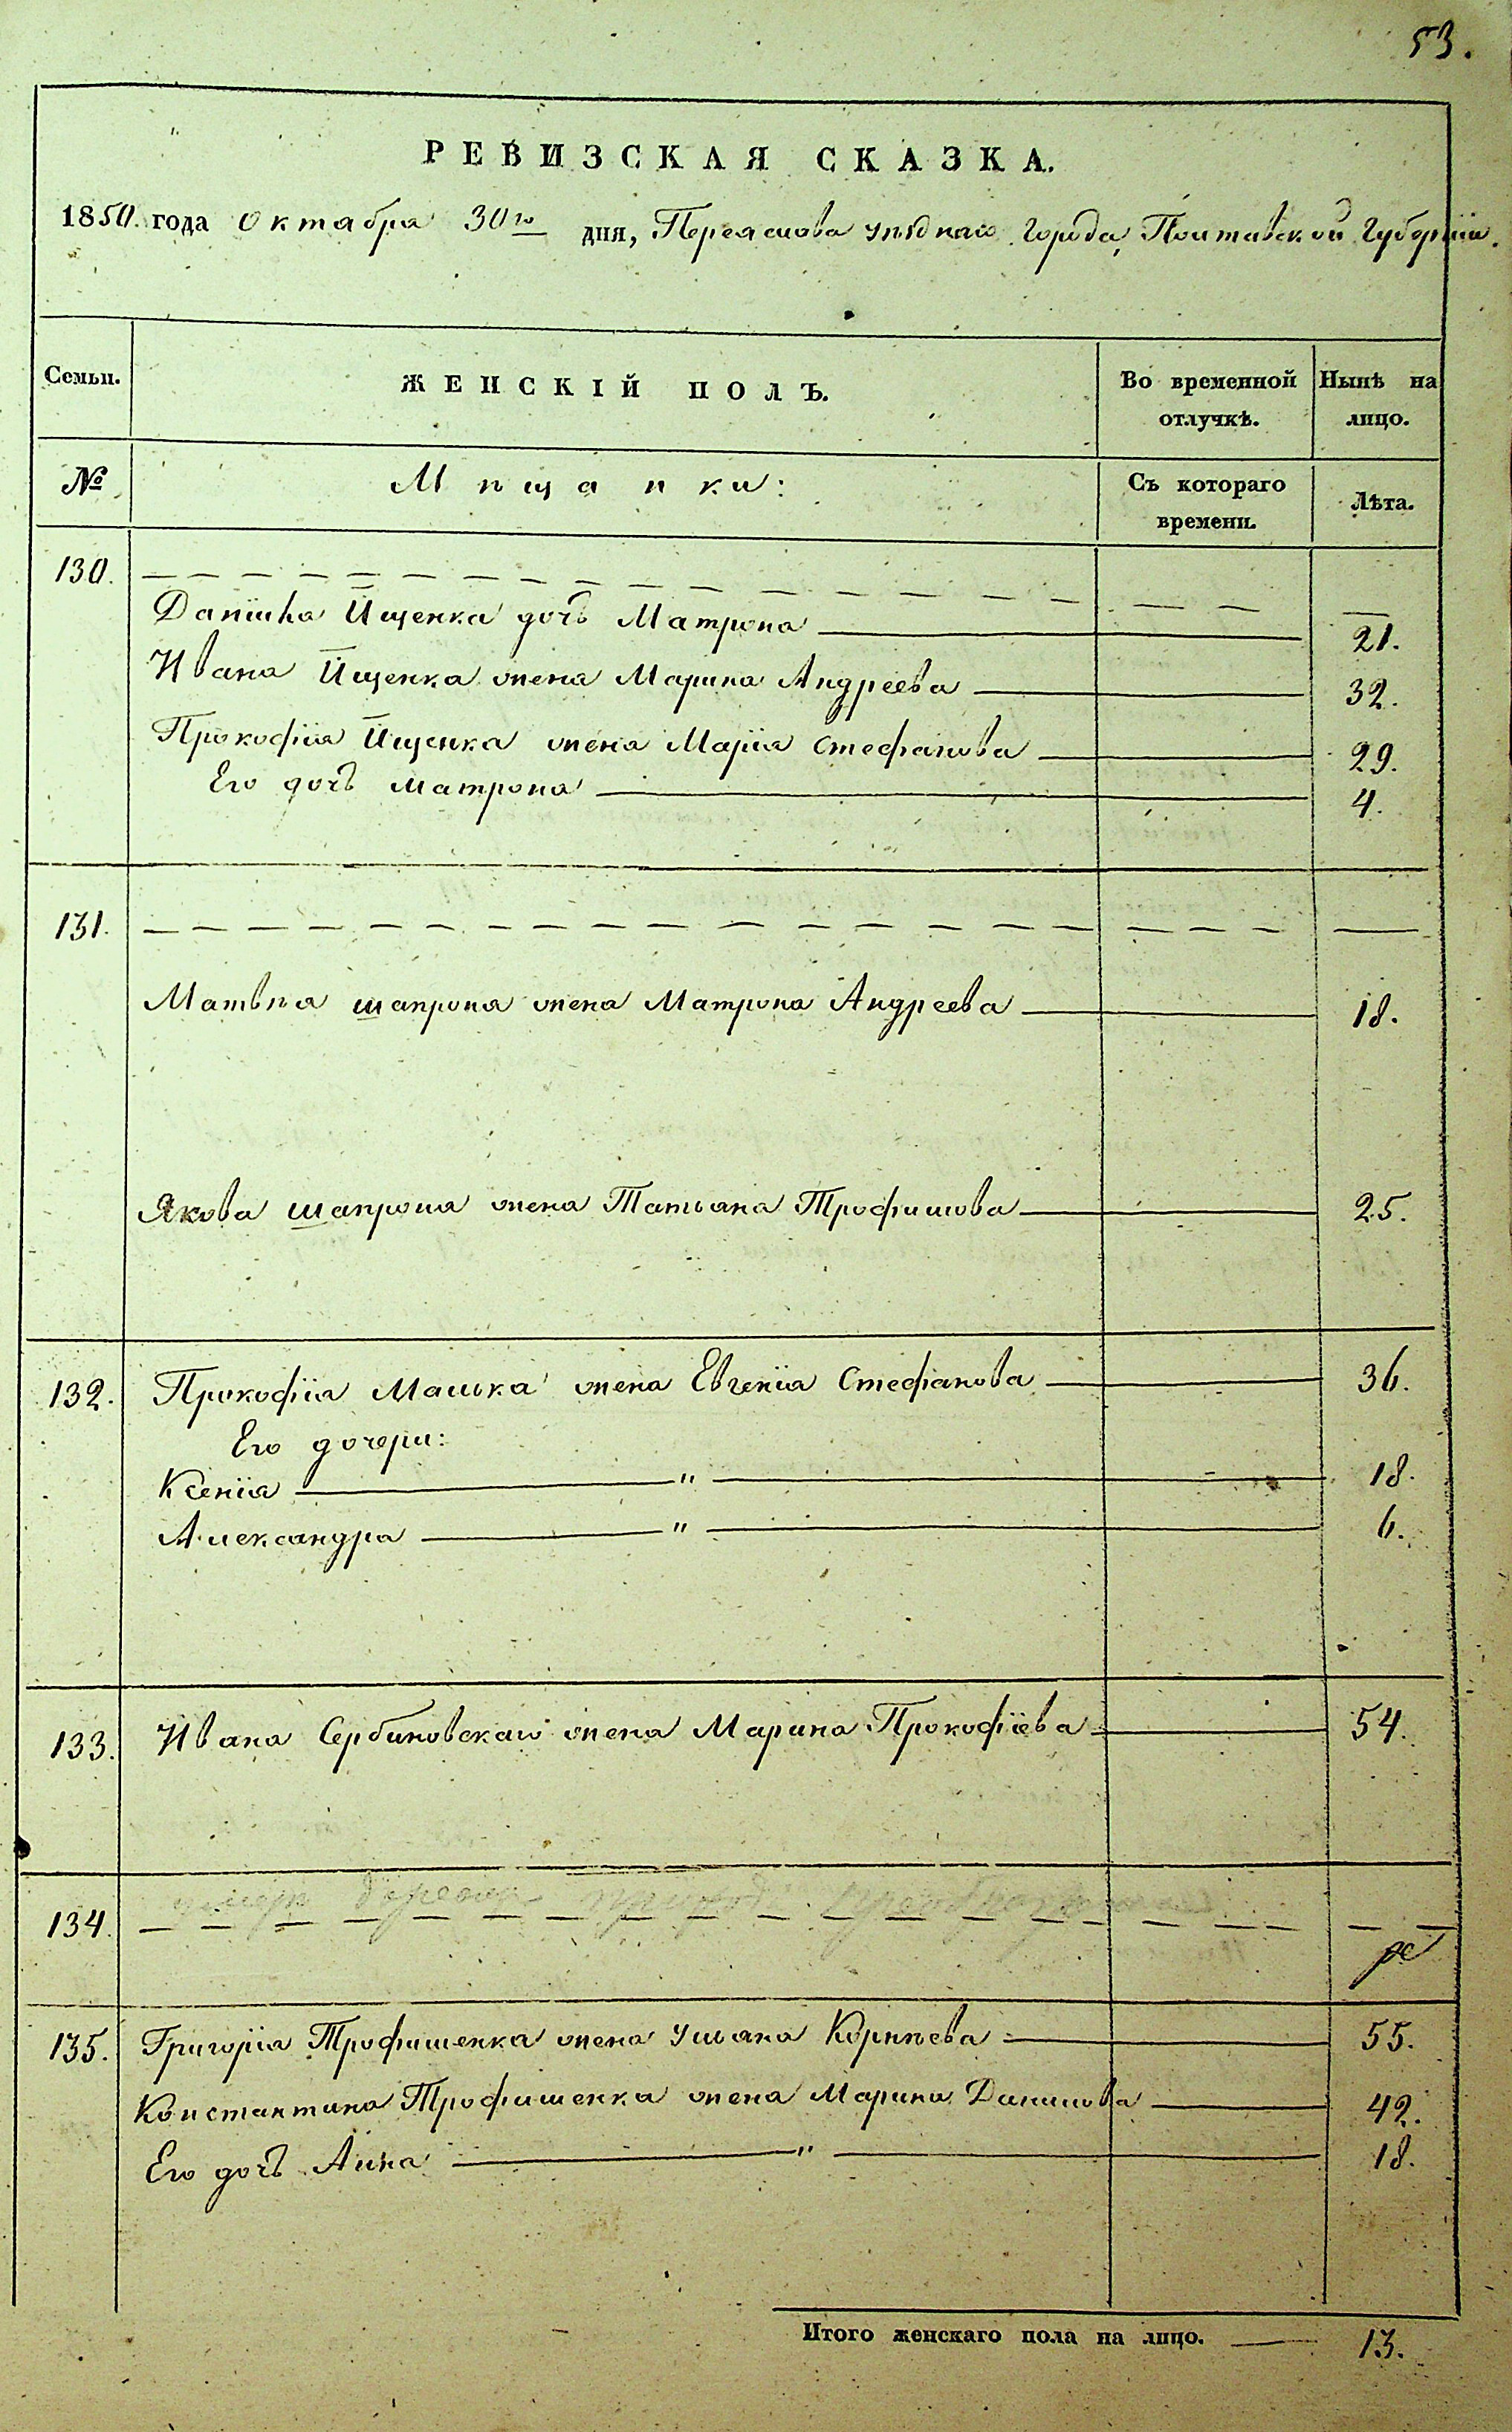 53.
РЕВИЗСКАЯ СКАЗКА.
1850. года Октября 30го дня, Переяслова уѣзднаго Города, Полтавской Губерніи.
Семьи.
ЖЕНСКІЙ ПОЛЪ.
Во временной отлучкѣ.
Нынѣ на лицо.
№
Мѣщанки:
Съ котораго времени.
Лѣта.
130.
Даніила Ищенка дочь Матрона 21.
Ивана Ищенка жена Марина Андреева 32.
Прокофія Ищенка жена Марія Стефанова 29.
Его дочь Матрона 4.
131.
Матвѣя Шапрона жена Матрона Андреева 18.
Якова Шапрона жена Татьяна Трофимова 25.
132. Прокофія Малька жена Евгенія Стефанова 36.
Его дочери:
Ксенія " 18.
Александра " 6.
133. Ивана Сербиновскаго жена Марина Прокофіева 54.
134.
135. Григорія Трофименка жена Ульяна Корнѣева 55.
Константина Трофименка жена Марина Данилова 42.
Его дочь Анна " 18.
Итого женскаго пола на лицо. 13.